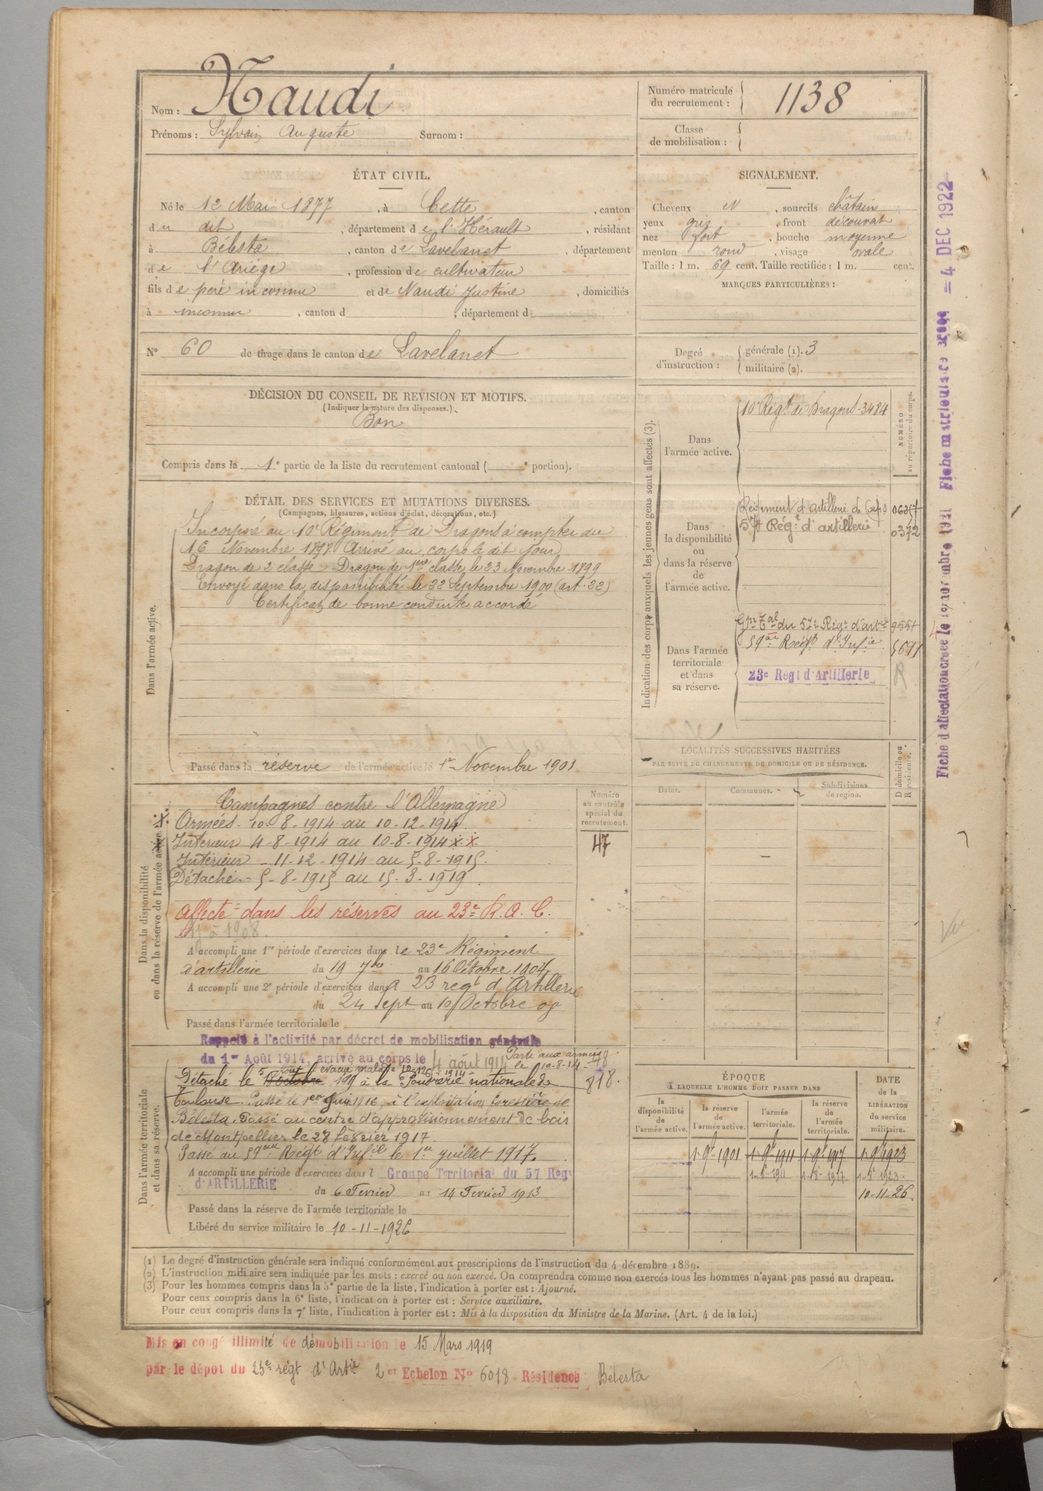 Nom : Naudi
Prénoms : Sylvain Auguste Surnom :
Numéro matricule du recrutement : 1138
Classe de mobilisation :
ÉTAT CIVIL.
Né le 12 Mai 1877, à Cette, canton
du dit, département de l'Hérault, résidant
à Bélesta, canton de Lavelanet, département
de l'Ariège, profession de cultivateur
fils de père inconnu et de Naudi Justine, domiciliés
à inconnu, canton d , département d
N° 60 de tirage dans le canton de Lavelanet
SIGNALEMENT.
Cheveux N, sourcils châtain
yeux gris, front découvert
nez fort, bouche moyenne
menton rond, visage ovale
Taille : 1 m. 69 cent. Taille rectifiée : 1 m. cent.
MARQUES PARTICULIÈRES :
Degré d'instruction : générale (1). 3
militaire (2).
DÉCISION DU CONSEIL DE REVISION ET MOTIFS.
(Indiquer la nature des dispenses.)
Bon
Compris dans la 1e partie de la liste du recrutement cantonal ( e portion).
DÉTAIL DES SERVICES ET MUTATIONS DIVERSES.
(Campagnes, blessures, actions d'éclat, décorations, etc.)
Dans l'armée active.
Incorporé au 10e Régiment de Dragons à compter du
16 Novembre 1897. Arrivé au corps le dit jour
Dragon de 2 classe Dragon de 1ère classe le 23 Novembre 1899
Envoyé dans la disponibilité le 22 Septembre 1900 (art. 22)
Certificat de bonne conduite accordé
Passé dans la réserve de l'armée active le 1er Novembre 1901
Indication des corps auxquels les jeunes gens sont affectés (3).
NUMÉRO au répertoire du corps.
Dans l'armée active.
10e Régt de Dragons 3484
Dans la disponibilité ou dans la réserve de l'armée active.
Régiment d'artillerie de Corps
57e Régt d'artillerie 0372
Dans l'armée territoriale et dans sa réserve.
Gpe Tal du 57e Régt d'artie
59ème Régt d'Infie
23e Regt d'Artillerie R
LOCALITÉS SUCCESSIVES HABITÉES
PAR SUITE DE CHANGEMENTS DE DOMICILE OU DE RÉSIDENCE.
Dates. Communes. Subdivisions de région. D. domicile ou R. résidence.
Dans la disponibilité ou dans la réserve de l'armée active.
Numéro au contrôle spécial du recrutement.
47
Campagnes contre l'Allemagne
Armées 10-8-1914 au 10-12-1914
Intérieur 4-8-1914 au 10-8-1914 x x
Intérieur - 11-12-1914 au 5-8-1915
Détaché - 5-8-1915 au 15-3-1919
Affecté dans les réserves au 23e R.A.C.
A accompli une 1re période d'exercices dans le 23e Régiment
d'artillerie du 19 7bre au 16 Octobre 1904
A accompli une 2e période d'exercices dans 23 regt d'Artillerie
du 24 Sept au 10 Octobre 07
Passé dans l'armée territoriale le
Dans l'armée territoriale et dans sa réserve.
Rappelé à l'activité par décret de mobilisation générale
du 1er Août 1914, arrivé au corps le 4 août 1914 Parti aux armées le 10-8-14
878.
Détaché le 5 1915 à la Poudrerie nationale de
Toulouse. Passé le 1er 1916 à l'exploitation forestière de
Bélesta. Passé au centre d'approvisionnement de bois
de Montpellier le 28 février 1917.
Passé au 59ème Régt d'Infie le 1er juillet 1917.
A accompli une période d'exercices dans l Groupe Territorial du 57 Regt
d'ARTILLERIE du 6 Fevrier au 14 Fevrier 1913
Passé dans la réserve de l'armée territoriale le
Libéré du service militaire le 10-11-1926
ÉPOQUE
A LAQUELLE L'HOMME DOIT PASSER DANS
la disponibilité de l'armée active. la réserve de l'armée active. l'armée territoriale. la réserve de l'armée territoriale.
DATE de la LIBÉRATION du service militaire.
1-9bre 1901 1-9bre 1911 1-9bre 1917 1-9bre 1923
10-11-26.
(1) Le degré d'instruction générale sera indiqué conformément aux prescriptions de l'instruction du 4 décembre 1889.
(2) L'instruction militaire sera indiquée par les mots : exercé ou non exercé. On comprendra comme non exercés tous les hommes n'ayant pas passé au drapeau.
(3) Pour les hommes compris dans la 5e partie de la liste, l'indication à porter est : Ajourné.
Pour ceux compris dans la 6e liste, l'indication à porter est : Service auxiliaire.
Pour ceux compris dans la 7e liste, l'indication à porter est : Mis à la disposition du Ministre de la Marine. (Art. 4 de la loi.)
Mis en congé illimité de démobilisation le 15 Mars 1919
par le dépot du 23e régt d'Artie 2e Echelon N° 6018 Résidence Bélesta
Fiche d'affectation créée le novembre 1921 Fiche matriculaire = 4 DEC 1922